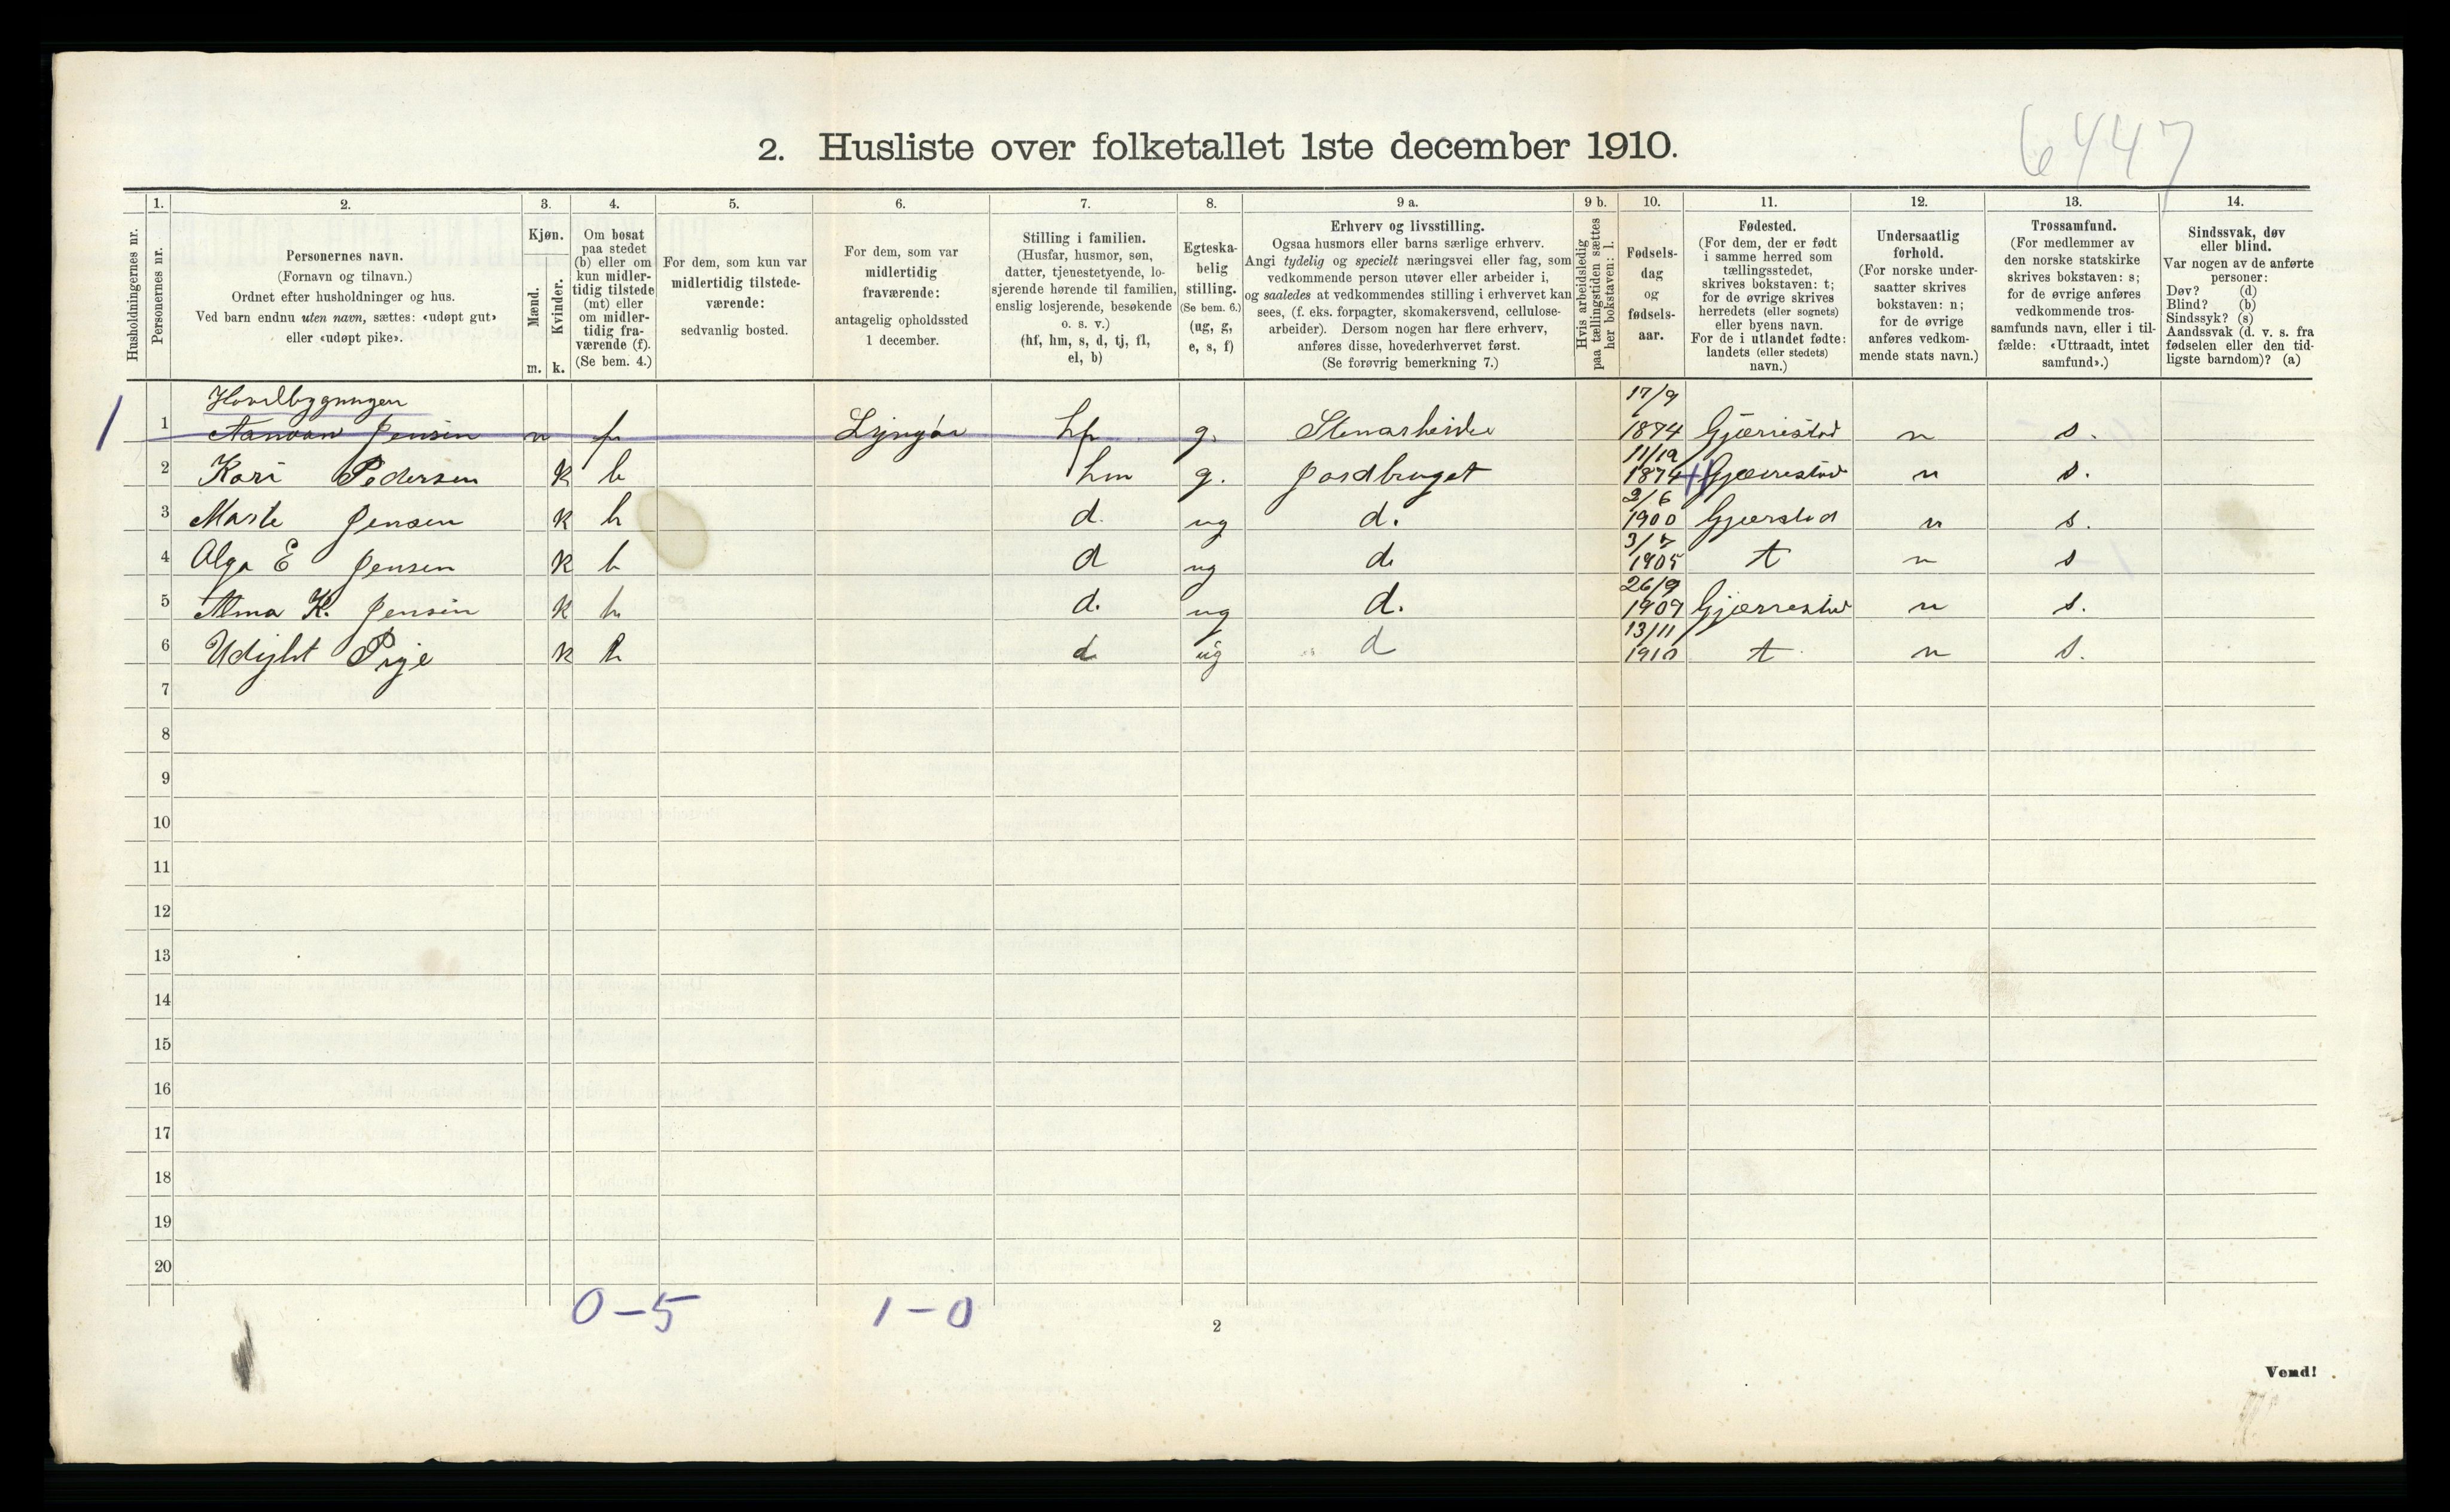 6447
2. Husliste over folketallet 1ste december 1910.
Husholdningernes nr.
1. Personernes nr.
2. Personernes navn.
(Fornavn og tilnavn.)
Ordnet efter husholdninger og hus.
Ved barn endnu uten navn, sættes: «udøpt gut»
eller «udøpt pike».
3. Kjøn.
Mænd. m.
Kvinder. k.
4. Om bosat
paa stedet
(b) eller om
kun midler-
tidig tilstede
(mt) eller
om midler-
tidig fra-
værende (f).
(Se bem. 4.)
5. For dem, som kun var
midlertidig tilstede-
værende:
sedvanlig bosted.
6. For dem, som var
midlertidig
fraværende:
antagelig opholdssted
1 december.
7. Stilling i familien.
(Husfar, husmor, søn,
datter, tjenestetyende, lo-
sjerende hørende til familien,
enslig losjerende, besøkende
o. s. v.)
(hf, hm, s, d, tj, fl,
el, b)
8. Egteska-
belig
stilling.
(Se bem. 6.)
(ug, g,
e, s, f)
9 a. Erhverv og livsstilling.
Ogsaa husmors eller barns særlige erhverv.
Angi tydelig og specielt næringsvei eller fag, som
vedkommende person utøver eller arbeider i,
og saaledes at vedkommendes stilling i erhvervet kan
sees, (f. eks. forpagter, skomakersvend, cellulose-
arbeider). Dersom nogen har flere erhverv,
anføres disse, hovederhvervet først.
(Se forøvrig bemerkning 7.)
9 b. Hvis arbeidsledig
paa tællingstiden sættes
her bokstaven: l.
10. Fødsels-
dag
og
fødsels-
aar.
11. Fødested.
(For dem, der er født
i samme herred som
tællingsstedet,
skrives bokstaven: t;
for de øvrige skrives
herredets (eller sognets)
eller byens navn.
For de i utlandet fødte:
landets (eller stedets)
navn.)
12. Undersaatlig
forhold.
(For norske under-
saatter skrives
bokstaven: n;
for de øvrige
anføres vedkom-
mende stats navn.)
13. Trossamfund.
(For medlemmer av
den norske statskirke
skrives bokstaven: s;
for de øvrige anføres
vedkommende tros-
samfunds navn, eller i til-
fælde: «Uttraadt, intet
samfund».)
14. Sindssvak, døv
eller blind.
Var nogen av de anførte
personer:
Døv? (d)
Blind? (b)
Sindssyk? (s)
Aandssvak (d. v. s. fra
fødselen eller den tid-
ligste barndom)? (a)
17/9
1 1 Jensen f Lyngør hf g. Stenarbeider 1874 Gjærrestad n s.
2 Kari Pedersen k b hm g. jordbruget 1874 Gjærrestad n s.
2/6
3 Jensen k b d. ug d. 1900 Gjerstad n s.
4 Olga E Jensen k b d ug d. 1905 t n s
26/9
5 Alma K. Jensen k b d. ug d. 1909 Gjærrestad n s.
13/11
6 Udøbt Pige k b d ug d 1910 t n s.
7
8
9
10
11
12
13
14
15
16
17
18
19
20
0-5 1-0
2
Vend!